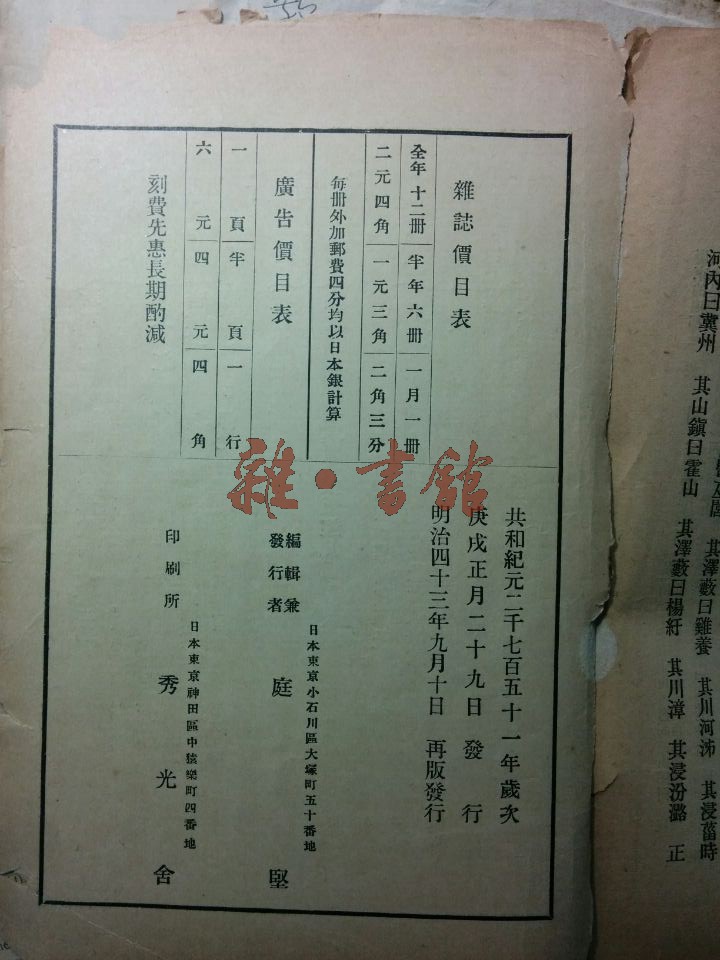 雜誌價目表
全年十二冊 半年六冊 一月一冊
二元四角 一元三角 二角三分
每冊外加郵費四分均以日本銀計算
廣告價目表
一頁 半頁 一行
六元 四元 四角
刻費先惠長期酌減
共和紀元二千七百五十一年歲次
庚戌正月二十九日發行
明治四十三年九月十日 再版發行
編輯兼
發行者
日本東京小石川區大塚町五十番地
庭堅
印刷所
日本東京神田區中猿樂町四番地
秀光舍
雜·書館
河內曰冀州 其山鎮曰霍山 其澤藪曰楊紆 其川漳 其浸汾潞 正
其澤藪曰雞養 其川河泲 其浸菑時